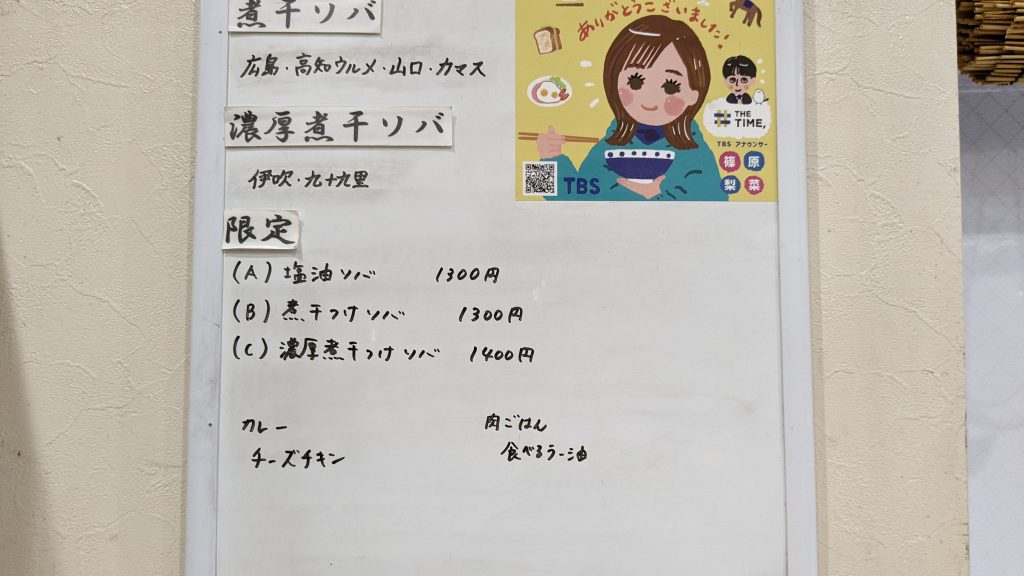 煮干ソバ
広島・高知ウルメ・山口・カマス
濃厚煮干ソバ
伊吹・九十九里
限定
(A) 塩油ソバ 1300円
(B) 煮干つけソバ 1300円
(C) 濃厚煮干つけソバ 1400円
カレー 肉ごはん
チーズチキン 食べるラー油
ありがとうございました!
# THE TIME,
TBS アナウンサー
篠原
梨菜
TBS